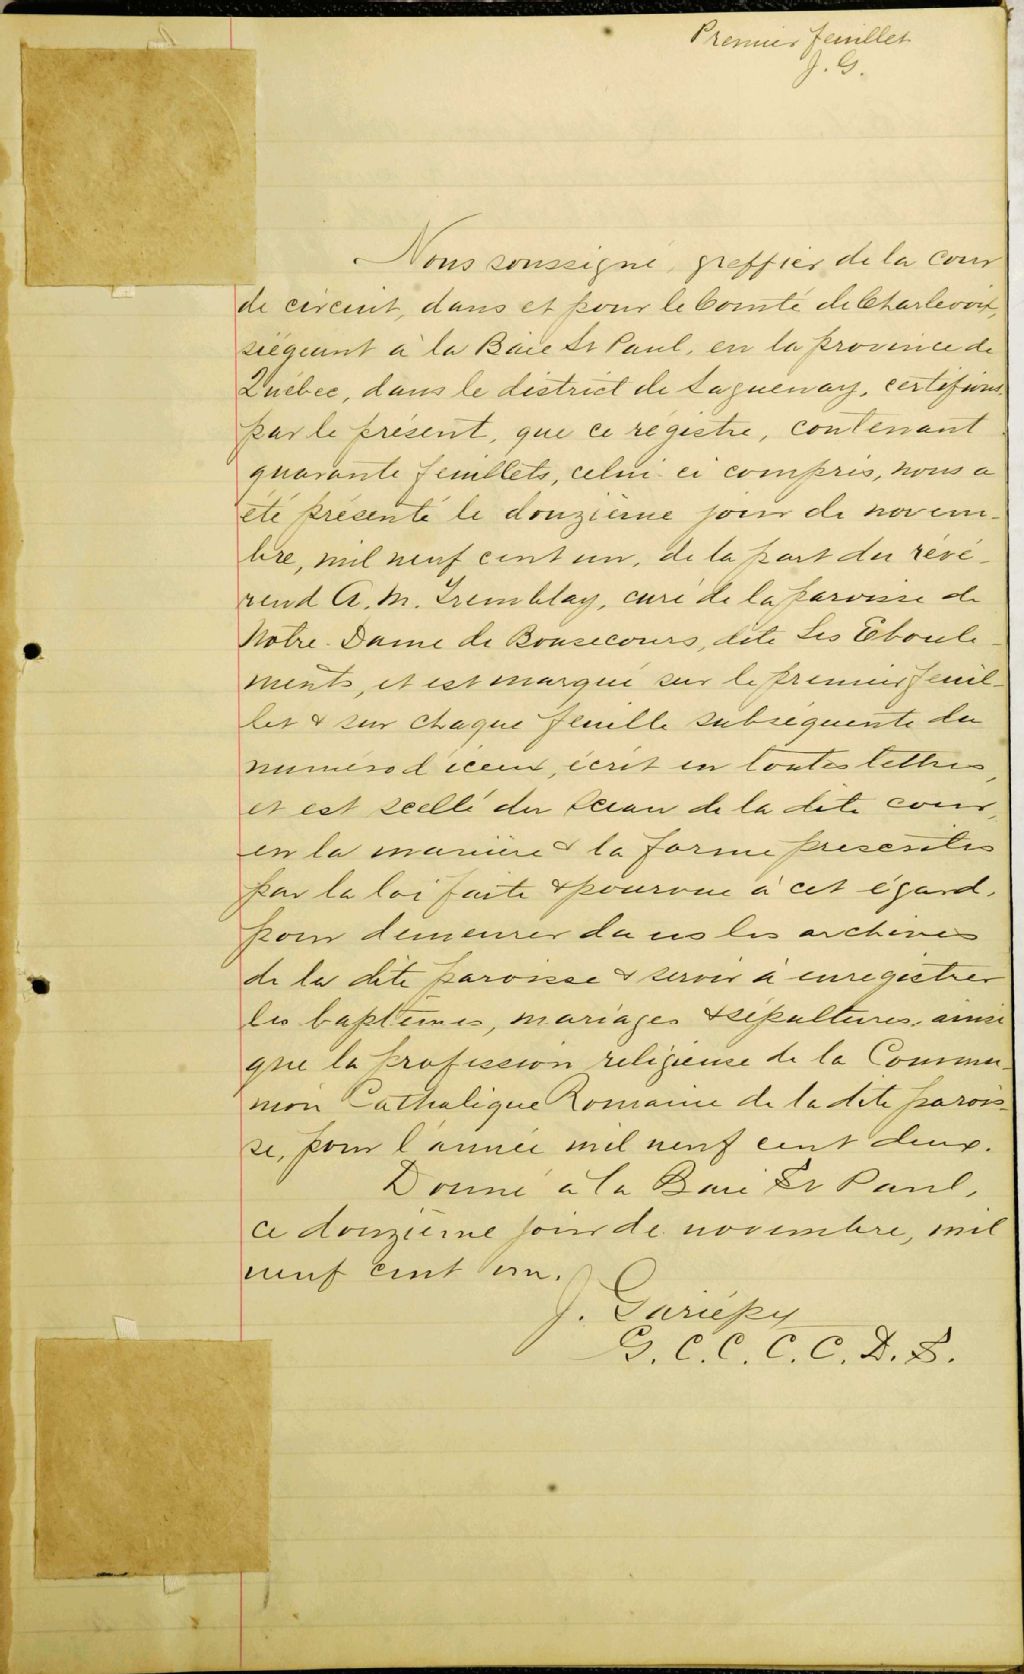 Premier feuillet
J. G.
Nous soussigné, greffier de la cour
de circuit, dans et pour le Comté de Charlevoix,
siégeant à la Baie St Paul, en la province de
Québec, dans le district de Saguenay, certifions
par le présent, que ce régistre, contenant
quarante feuillets, celui-ci compris, nous a
été présenté le douzième jour de novem-
bre, mil neuf cent un, de la part du révé-
rend A. M. Tremblay, curé de la paroisse de
Notre-Dame de Bonsecours, dite Les Eboule-
ments, et est marqué sur le premier feuil-
let & sur chaque feuille subséquente du
numéro d'iceux, écrit en toutes lettres,
et est scellé du sceau de la dite cour,
en la manière & la forme prescrites
par la loi faite & pourvue à cet égard,
pour demeurer dans les archives
de la dite paroisse & servir à enregistrer
les baptêmes, mariages & sépultures, ainsi
que la profession religieuse de la Commu-
nion Catholique Romaine de la dite parois-
se, pour l'année mil neuf cent deux.
Donné à la Baie St Paul,
ce douzième jour de novembre, mil
neuf cent un.
J. Gariépy
G. C. C. C. C. D. S.